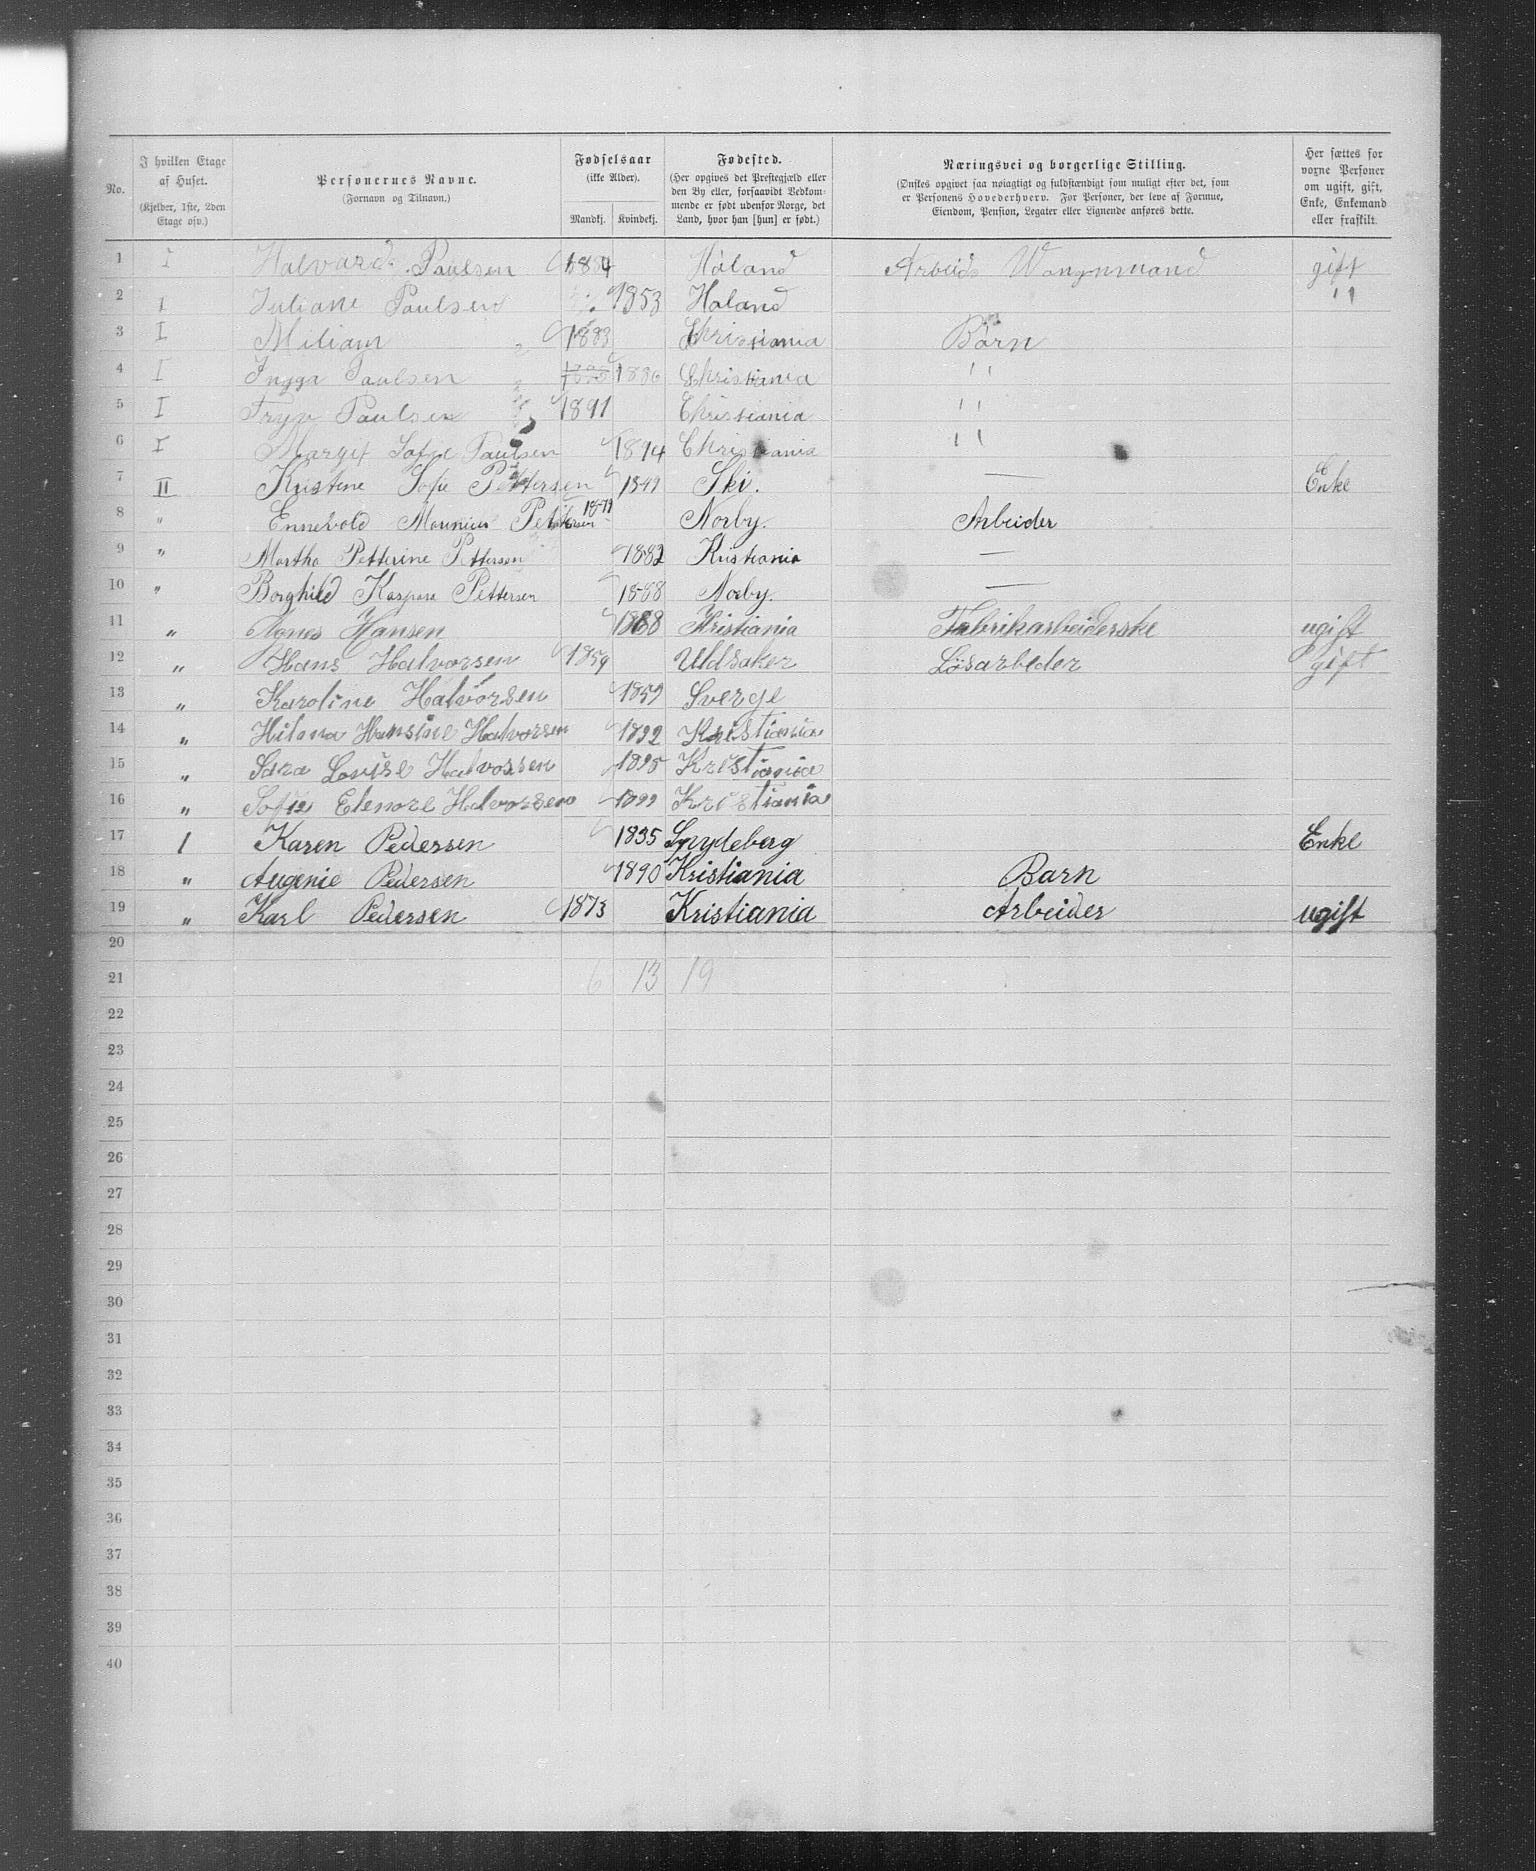 No.
I hvilken Etage af Huset. (Kjelder, 1ste, 2den Etage osv.)
Personernes Navne. (Fornavn og Tilnavn.)
Fødselsaar (ikke Alder). Mandkj. Kvindekj.
Fødested. (Her opgives det Prestegjæld eller den By eller, forsaavidt Vedkommende er født udenfor Norge, det Land, hvor han [hun] er født.)
Næringsvei og borgerlige Stilling. (Ønskes opgivet saa nøiagtigt og fuldstændigt som muligt efter det, som er Personens Hovederhverv. For Personer, der leve af Formue, Eiendom, Pension, Legater eller Lignende anføres dette.)
Her sættes for voxne Personer om ugift, gift, Enke, Enkemand eller fraskilt.
1 I Halvard Paulsen Høland Arbeids gift
2 I Juliane Paulsen 1853 Høland "
3 I 1883 Christiania Børn
4 I Ingga Paulsen 1886 Christiania "
5 I Paulsen 1891 Christiania "
6 I Margit Sofie Paulsen 1894 Christiania "
7 II Kristine Sofie Pettersen 1849 Ski. — Enke
8 " Ennevold 1879 Norby. Arbeider
9 " Martha Petterine Pettersen 1882 Kristiania —
10 " Borghild Kaspara Pettersen 1888 Norby. —
11 " Agnes Hansen 1888 Kristiania Fabrikarbeiderske ugift
12 " Hans Halvorsen 1859 Uldsaker Løsarbeder gift
13 " Karoline Halvorsen 1859 Sverge
14 " Hilma Hansine Halvorsen 1892 Kristiania
15 " Sara Louise Halvorsen 1895 Kristiania
16 " Sofie Elenore Halvorsen 1899 Kristiania
17 I Karen Pedersen 1835 Spydeberg Enke
18 " Augenie Pedersen 1890 Kristiania Barn
19 " Karl Pedersen 1873 Kristiania Arbeider ugift
20
21 6 13 19
22
23
24
25
26
27
28
29
30
31
32
33
34
35
36
37
38
39
40